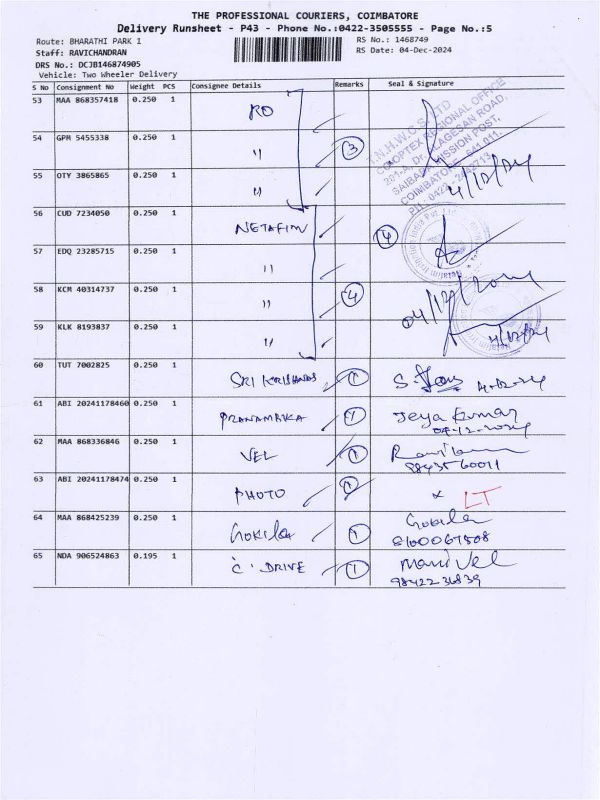 THE PROFESSIONAL COURIERS, COIMBATORE
Delivery Runsheet - P43 - Phone No.:0422-3505555 - Page No.:5
Route: BHARATHI PARK 1
RS No.: 1468749
Staff: RAVICHANDRAN
RS Date: 04-Dec-2024
DRS No.: DCJB146874905
Vehicle: Two Wheeler Delivery
S No Consignment No Weight PCS Consignee Details Remarks Seal & Signature
53 MAA 868357418 0.250 1 RO
54 GPM 5455338 0.250 1 " 3
55 OTY 3865865 0.250 1 "
T.N.H.W.C.S. LTD
COOPTEX REGIONAL OFFICE
SAIBABA MISSION POST,
COIMBATORE - 641 011.
4/12/24
56 CUD 7234050 0.250 1 NETAFIM 4
57 EDQ 23285715 0.250 1 "
58 KCM 40314737 0.250 1 " 4 04/12/2024
59 KLK 8193837 0.250 1 " 4/12/24
60 TUT 7002825 0.250 1 SRI KRISHNAS 1 4-12-24
61 ABI 20241178460 0.250 1 PRANAMBIKA 1 Jeya Kumar
04-12-2024
62 MAA 868336846 0.250 1 VEL 1
9843560011
63 ABI 20241178474 0.250 1 PHOTO 1 x LT
64 MAA 868425239 0.250 1 Gokila 1 Gokila
8100067508
65 NDA 906524863 0.195 1 C. DRIVE 1 Mani Vel
9842236839